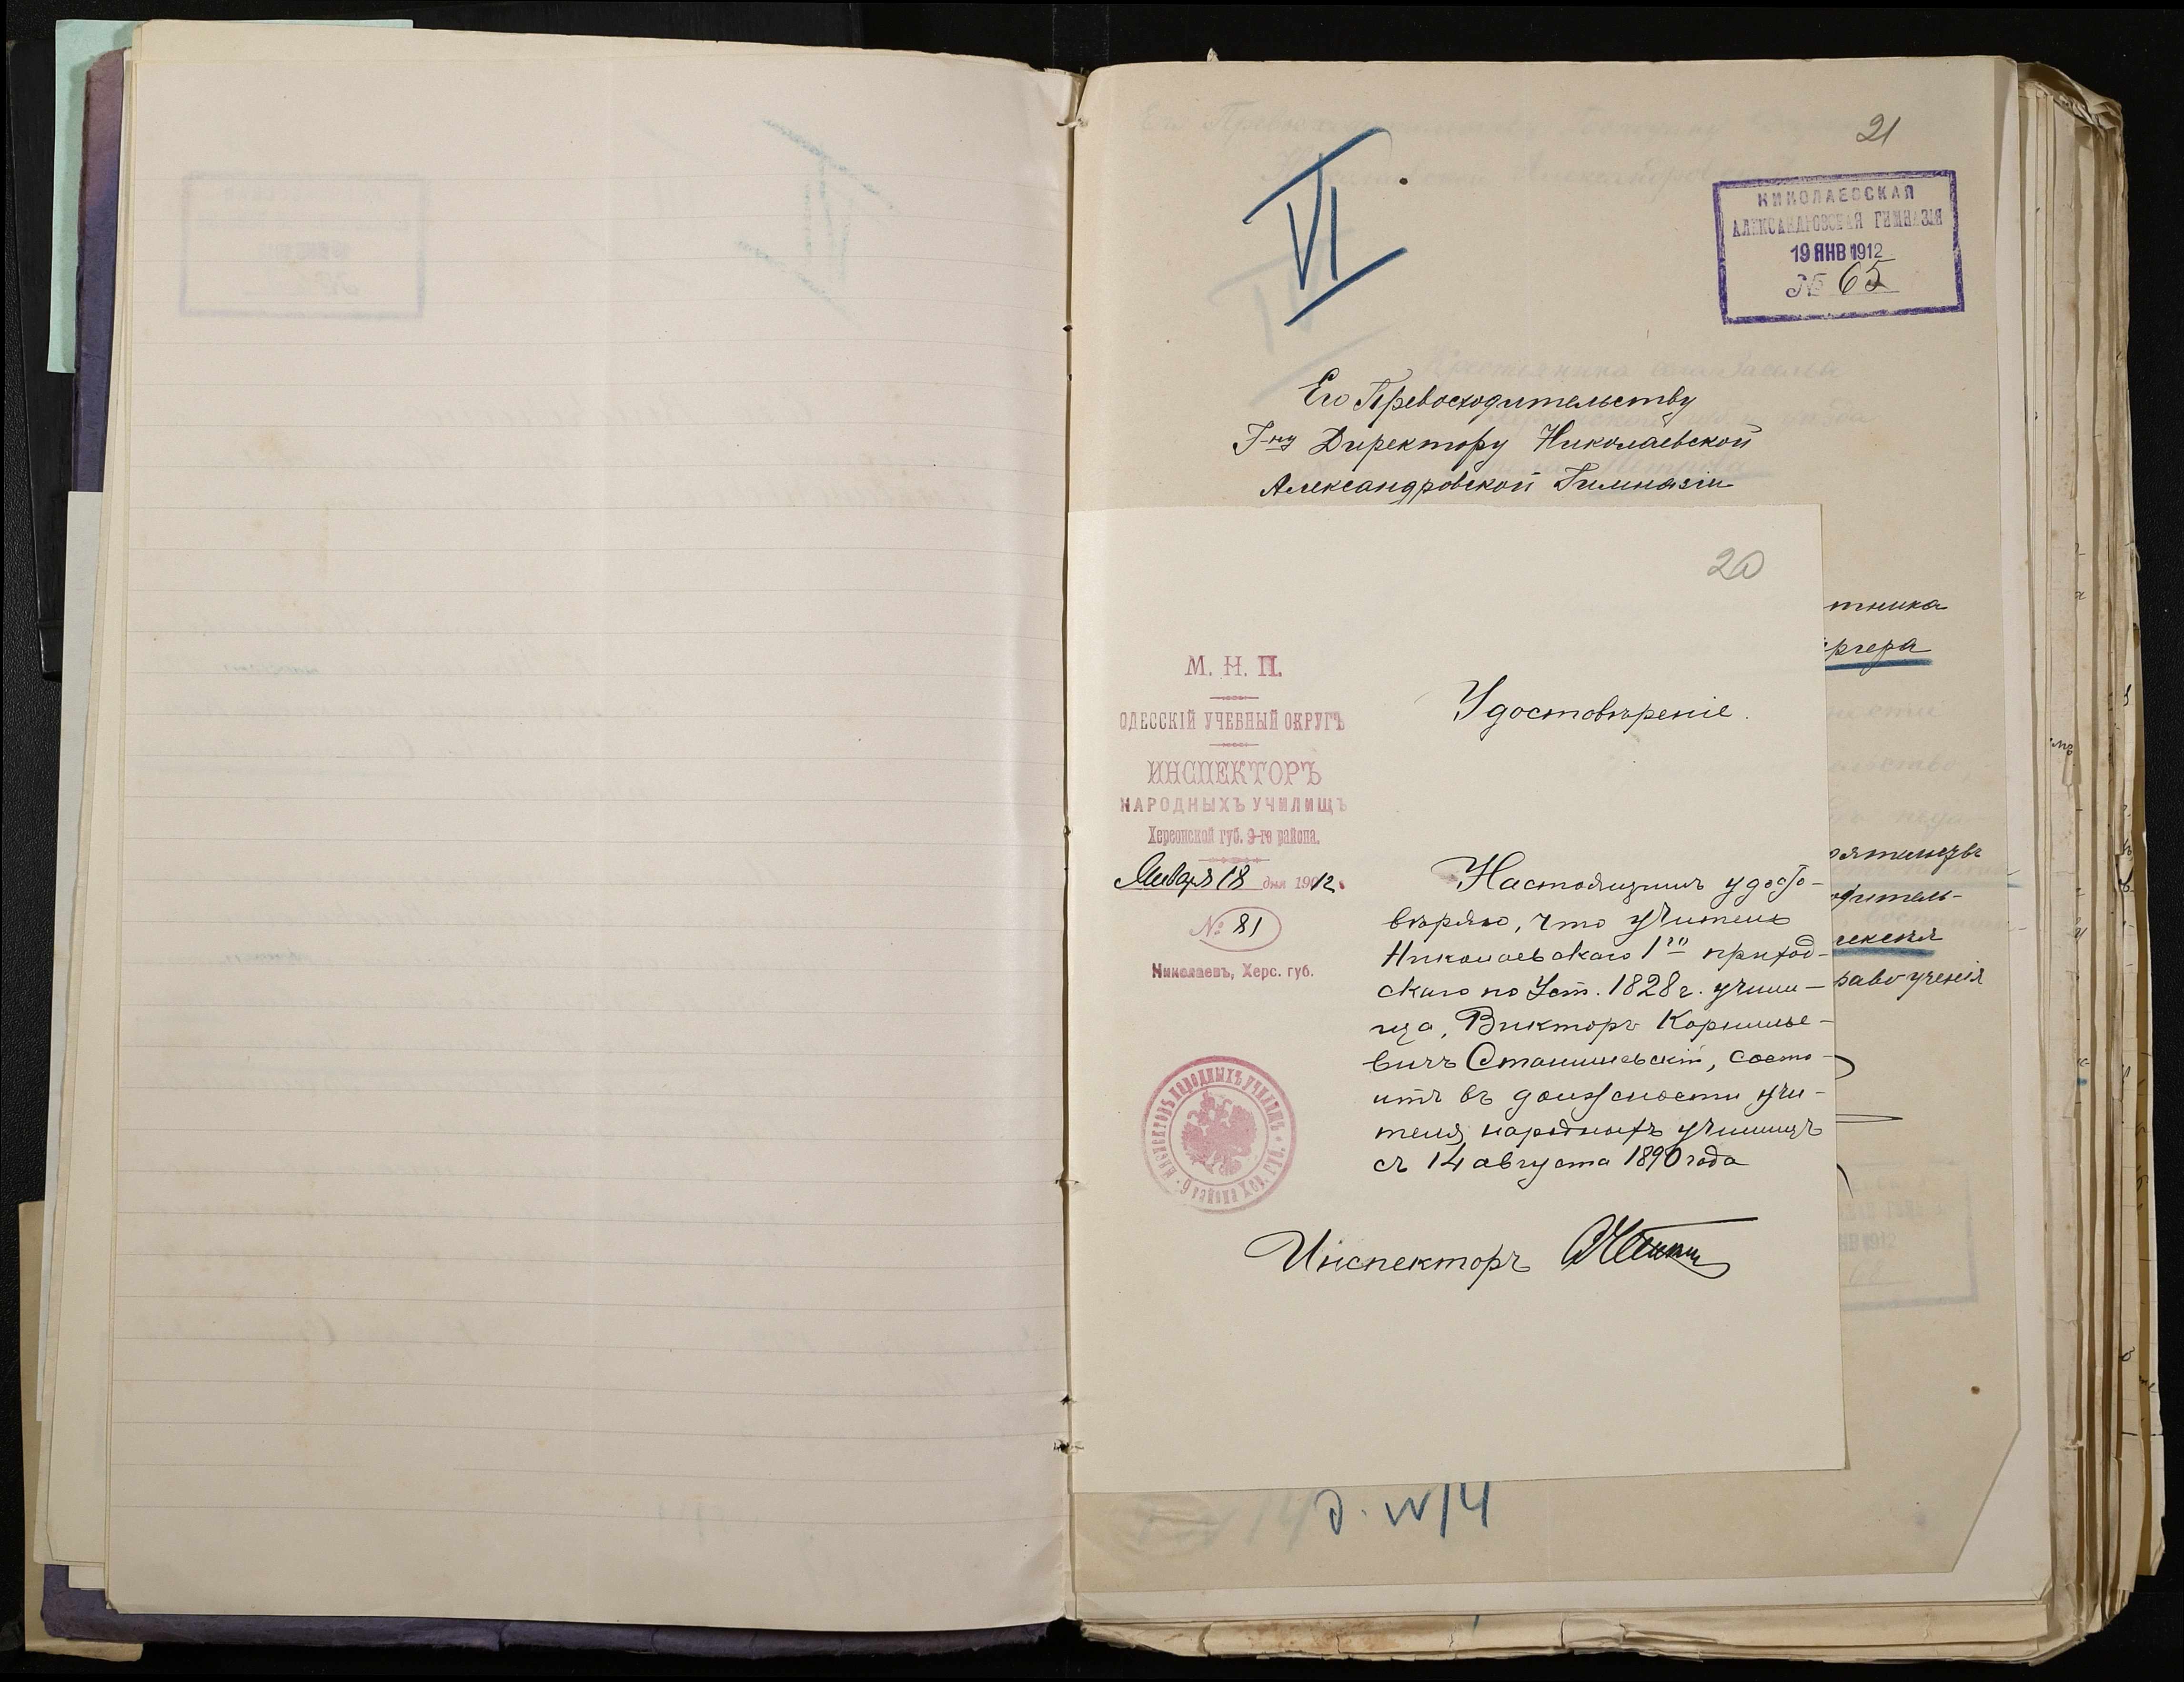 21
VI
НИКОЛАЕВСКАЯ
АЛЕКСАНДРОВСКАЯ ГИМНАЗІЯ
19 ЯНВ 1912
№ 65
Его Превосходительству
Г-ну Директору Николаевской
Александровской Гимназіи
20
тника
ргера
одитель-
раво ученія
М. Н. П.
ОДЕССКІЙ УЧЕБНЫЙ ОКРУГЪ
ИНСПЕКТОРЪ
НАРОДНЫХЪ УЧИЛИЩЪ
Херсонской губ. 9-го района.
Января 18 дня 1912.
№ 81
Николаевъ, Херс. губ.
Удостовѣреніе.
Настоящимъ удосто-
вѣряю, что учитель
Николаевскаго 1го приход-
скаго по Уст. 1828 г. учили-
ща, Викторъ Корнилье-
вичъ Станилевскій, состо-
итъ въ должности учи-
теля народныхъ училищъ
съ 14 августа 1890 года
Инспекторъ
Д. N 14